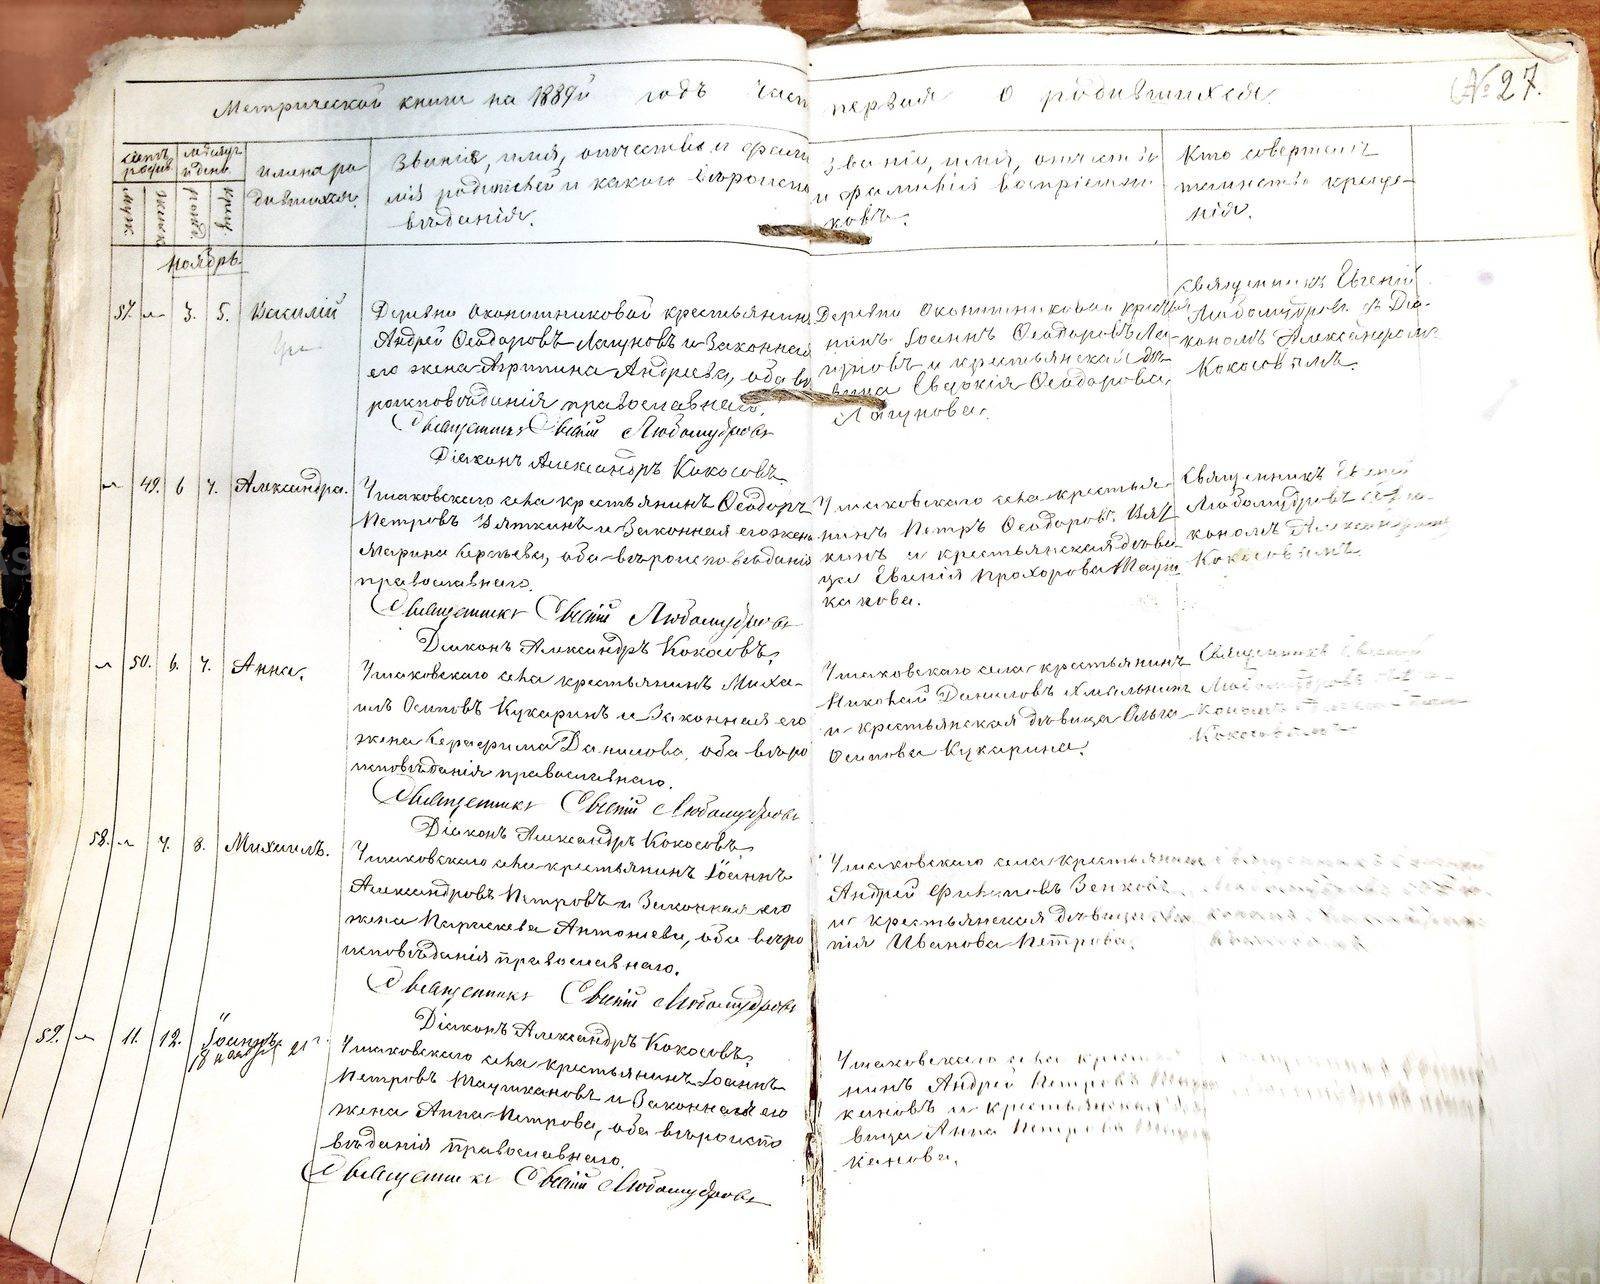 № 27.
Метрической книги на 1889й годъ часть первая о родившихся.
Счетъ родив.
Мѣсяцъ и день.
муж.
женск.
рожд.
крещ.
имена родившихся.
Званіе, имя, отчество и фамилія родителей и какого вѣроисповѣданія.
Званіе, имя, отчество и фамилія воспріемниковъ.
Кто совершалъ таинство крещенія.
Ноябрь.
57. 3. 5. Василій
Деревни Оконишниковой крестьянинъ
Андрей Ѳеодоровъ Лагуновъ и законная
его жена Андреева, оба вѣ
роисповѣданія православнаго.
Священникъ Евгеній Любомудровъ
Діаконъ Александръ Кокосовъ
Деревни Оконишниковой крестья
нинъ Іоаннъ Ѳеодоровъ Ла
гуновъ и крестьянская дѣ
вица Евдокія Ѳеодорова
Лагунова.
Священникъ Евгеній
Любомудровъ съ Діа
кономъ Александромъ
Кокосовымъ.
49. 6 7. Александра.
Ушаковскаго села крестьянинъ Ѳеодоръ
Петровъ Вяткинъ и законная его жена
Марина Сергѣева, оба вѣроисповѣданія
православнаго.
Священникъ Евгеній Любомудровъ
Діаконъ Александръ Кокосовъ.
Ушаковскаго села крестья
нинъ Петръ Ѳеодоровъ Вят
кинъ и крестьянская дѣви
ца Евгенія Прохорова Тауш
канова.
Священникъ Евгеній
Любомудровъ съ Діа
кономъ Александромъ
Кокосовымъ
50. 6. 7. Анна.
Ушаковскаго села крестьянинъ Миха
илъ Осиповъ Кукаринъ и законная его
жена Серафима Данилова, оба вѣро
исповѣданія православнаго.
Священникъ Евгеній Любомудровъ
Діаконъ Александръ Кокосовъ
Ушаковскаго села крестьянинъ
Николай Даниловъ
и крестьянская дѣвица Ольга
Осипова Кукарина.
Священникъ Евгеній
Любомудровъ съ Діа
кономъ
Кокосовымъ
58. 7. 8. Михаилъ.
Ушаковскаго села крестьянинъ Іоаннъ
Александровъ Петровъ и законная его
жена Параскева Антоніева, оба вѣро
исповѣданія православнаго.
Священникъ Евгеній Любомудровъ
Діаконъ Александръ Кокосовъ
Ушаковскаго села крестьянинъ
Андрей Филиповъ Зенковъ
и крестьянская дѣвица
нія Иванова Петрова.
59. 11. 12. Іоаннъ.
18 ноября 21 г.
Ушаковскаго села крестьянинъ Іоаннъ
Петровъ Таушкановъ и законная его
жена Анна Петрова, оба вѣроиспо
вѣданія православнаго.
Священникъ Евгеній Любомудровъ
Ушаковскаго села крестья
нинъ Андрей Петровъ Тауш
кановъ и крестьянская дѣ
вица Анна Петрова Тауш
канова.